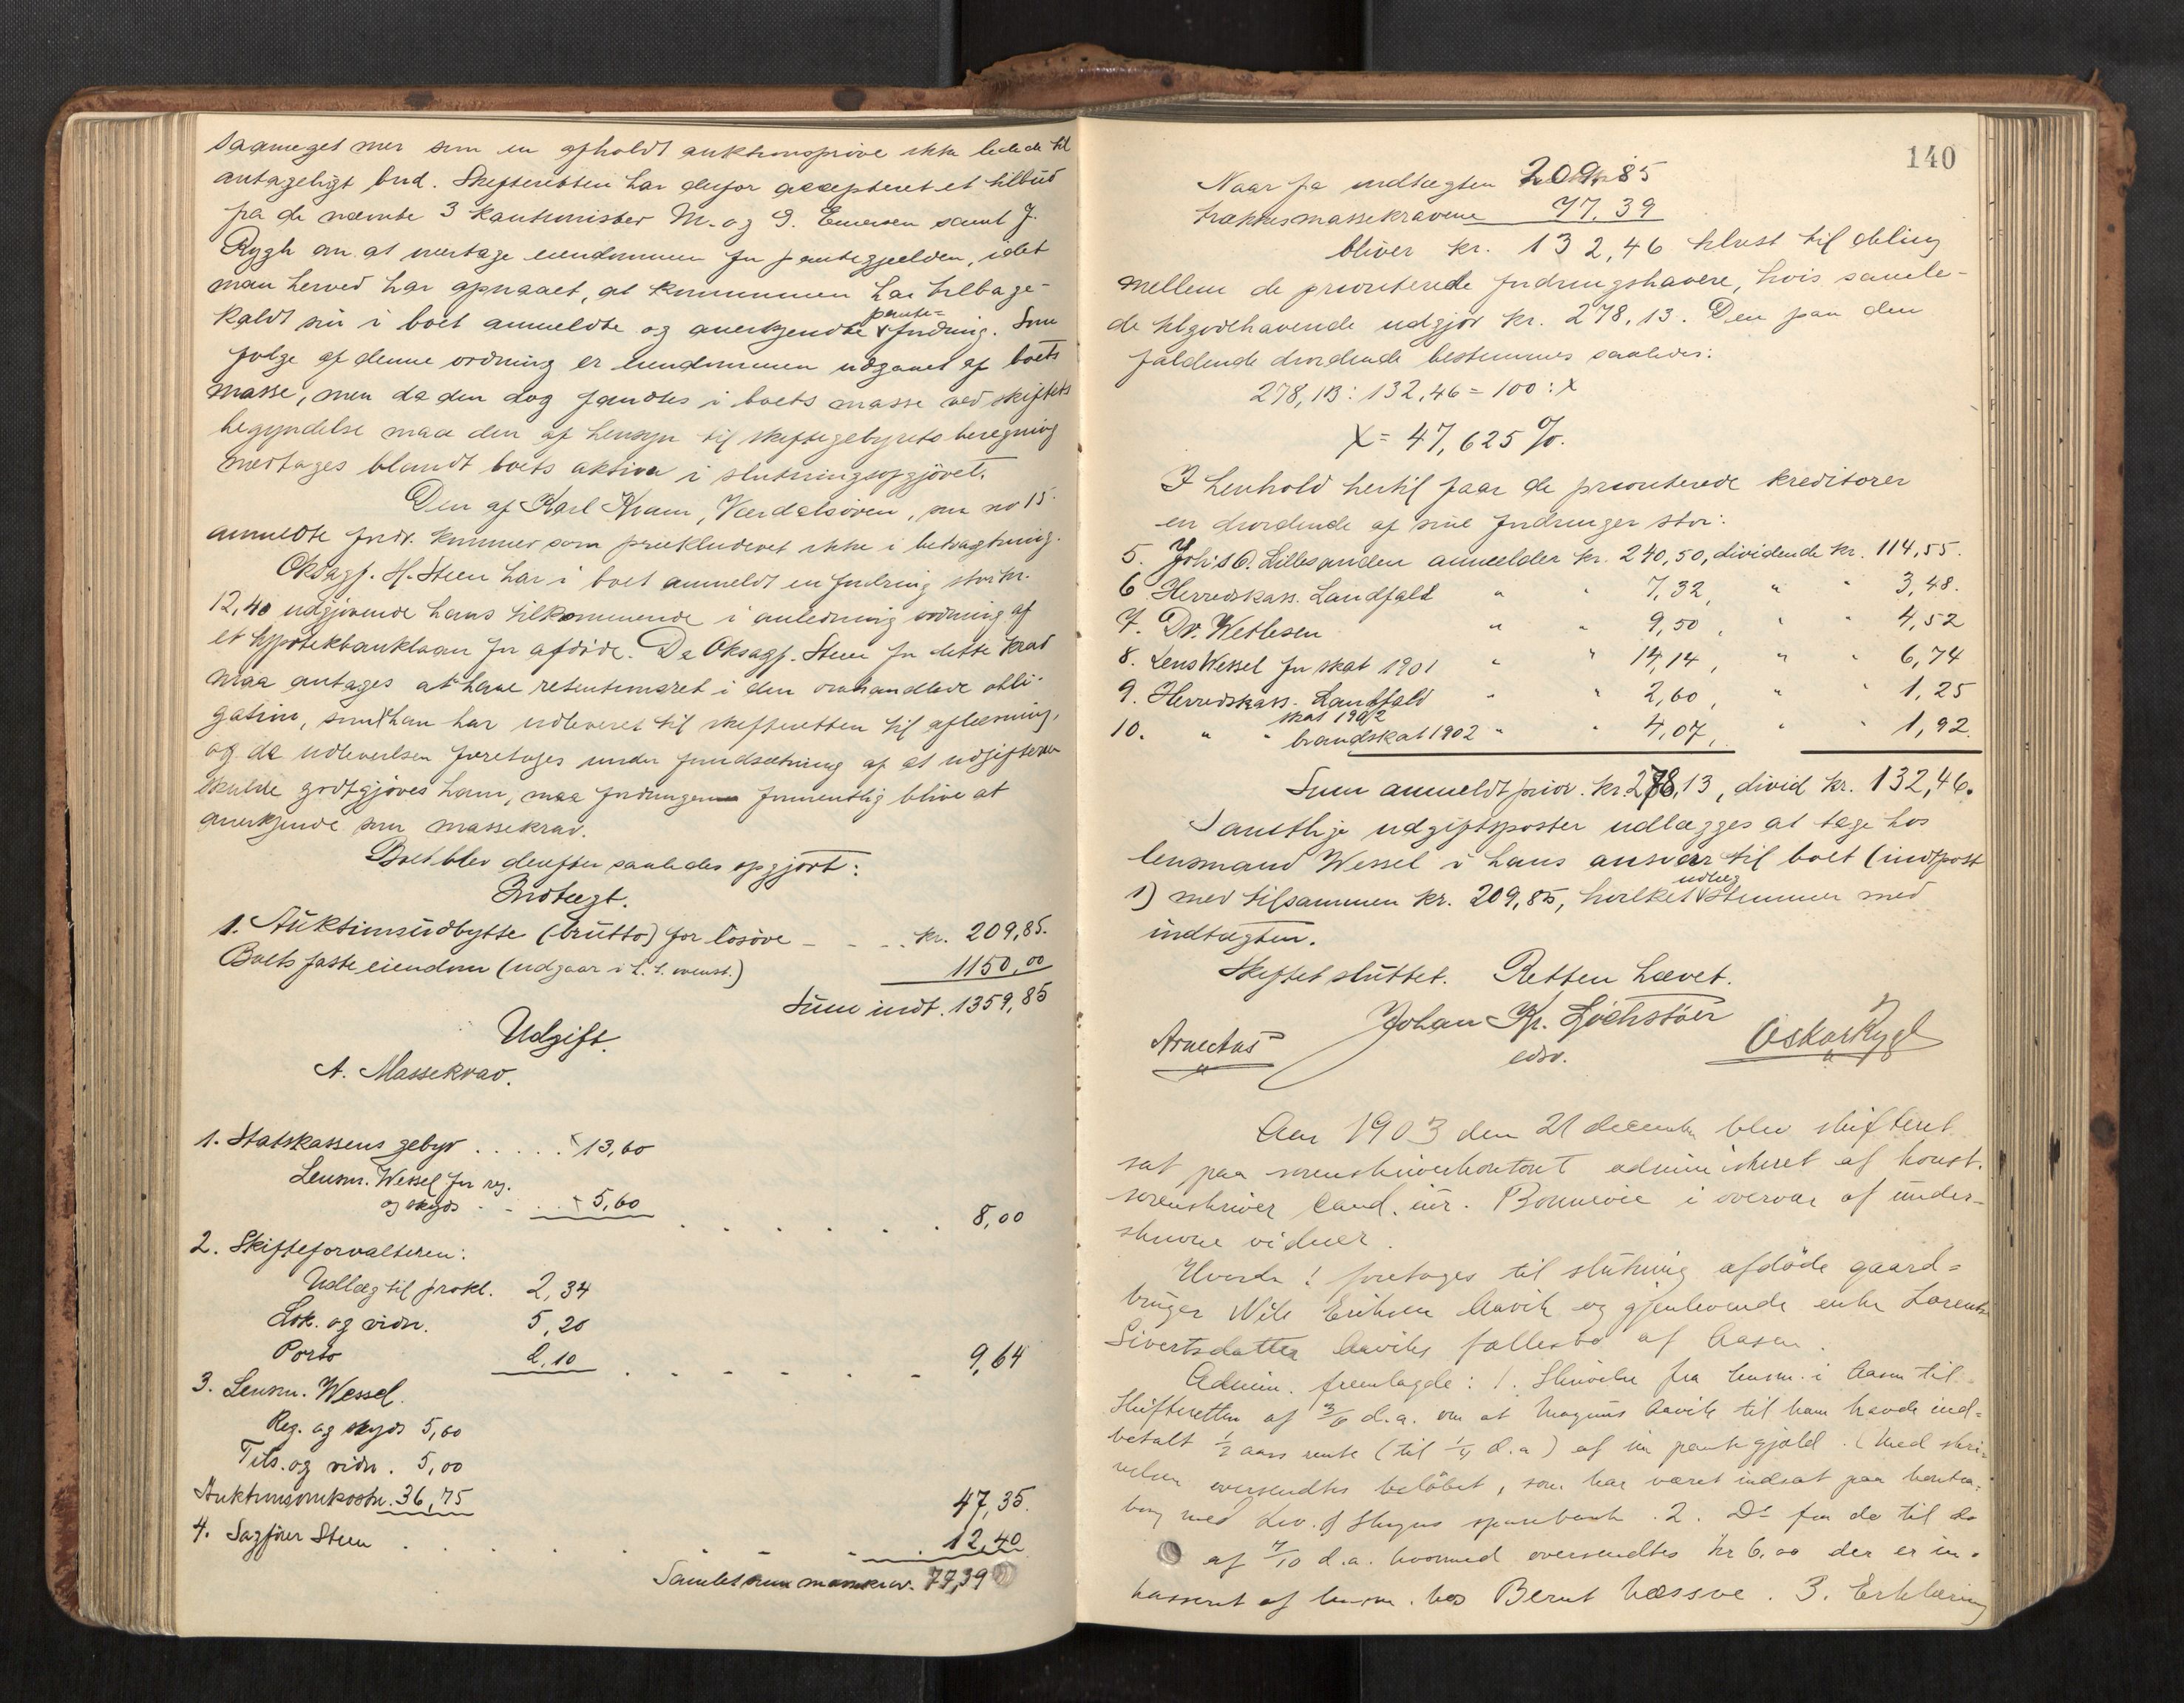 saameget mer som en afholdt auktionsprøve ikke ledede til
antageligt bud. Skifteretten har derfor accepteret et tilbud
fra de nævnte 3 kautionister M. og G. Emersen samt J.
Rygh om at overtage eiendommen for pantegjælden, idet
man herved har opnaaet, at kommunen har tilbage-
kaldt sin i boet anmeldte og anerkjendte pante-fordring. Som
følge af denne ordning er eiendommen udgaaet af boets
masse, men da den dog fandtes i boets masse ved skiftets
begyndelse maa den af hensyn til skiftegebyrets beregning
medtages blandt boets aktiva i slutningsopgjøret.
Den af Karl Kvam, Værdalsøren, som no 15
anmeldte fordr. kommer som prækluderet ikke i betragtning.
Oksagf. H. Steen har i boet anmeldt en fordring stor kr.
12,40 udgjørende hans tilkommende i anledning ordning af
et hypotekbanklaan for afdøde. Da Oksagf. Steen for dette krav
maa antages at have retentionsret i den omhandlede obli-
gation, som han har udleveret til skifteretten til aflæsning,
og da udleverelsen foretoges under forudsætning af at udgifterne
skulde godtgjøres ham, maa fordringen formentlig blive at
anerkjende som massekrav.
Boet blev derefter saaledes opgjort:
Indtægt.
1. Auktionsudbytte (brutto) for løsøre - - - kr. 209,85.
Boets faste eiendom (udgaar i h. t. ovenst.) 1150,00
Sum indt. 1359,85
Udgift.
A. Massekrav.
1. Statskassens gebyr . . . . . 13,60
Lensm. Wessel for reg.
og skyds . . . 5,60 . . . . . . 8,00
2. Skifteforvalteren:
Udlæg til prokl. 2,34
Lok. og vidn. 5,20
Porto 2,10 . . . . . . 9,64
3. Lensm. Wessel.
Reg. og skyds 5,60
Tils. og vidn. 5,00
Auktionsomkostn. 36,75 47,35.
4. Sagfører Steen . . . . . . 12,40
Samlet sum massekrav. 77,39
140
Naar fra indtægten 209,85
trækkes massekravene 77,39
bliver kr. 132,46 tilovers til deling
mellem de prioriterede fordringshavere, hvis samle-
de tilgodehavende udgjør kr. 278,13. Den paa dem
faldende dividende bestemmes saaledes:
278,13 : 132,46 = 100 : x
X = 47,625 %.
I henhold hertil faar de prioriterede kreditorer
en dividende af sine fordringer stor:
5. Joh:s O. Lillesanden anmelder kr. 240,50, dividende kr. 114,55.
6 Herredskass. Landfald " " 7,32, " " 3,48.
7. Dr. Wetlesen " " 9,50, " " 4,52
8. Lens Wessel for skat 1901 " " 14,14, " " 6,74
9. Herredskass. Landfald skat 1902 " " 2,60, " " 1,25
10. " " brandskat 1902 " " 4,07, " " 1,92.
Sum anmeldt prior. kr. 278,13, divid kr. 132,46.
Samtlige udgiftsposter udlægges at tage hos
lensmand Wessel i hans ansvar til boet (indt post
1) med tilsammen kr. 209,85, hvilket udlæg stemmer med
indtægten.
Skiftet sluttet. Retten hævet.
Johan Kr.
edsv.
Oskar Rygh
Aar 1903 den 21 december blev skifteret
sat paa sorenskriverkontoret administreret af konst.
sorenskriver cand. jur. Bonnevie i overvær af under-
skrevne vidner.
Hvorda: foretages til slutning afdøde gaard-
bruger Nils Eriksen Aavik og gjenlevende enke Lorentse
Sivertsdatter Aaviks fællesbo af Aasen.
Admin. fremlagde: 1. Skrivelse fra lensm. i Aasen til
skifteretten af 3/6 d.a. om at Magnus Aavik til ham havde ind-
betalt 1/2 aars rente (til 1/4 d.a) af sin pantegjæld. (Med skri-
velsen oversendtes beløbet, som har været indsat paa kontra-
bog med Lev. & Skogns sparebank. 2. Do fra do til do
af 7/10 d.a. hvormed oversendtes kr 6,00 der er in-
kasseret af lensm. hos Bernt Næssve. 3. Erklæring